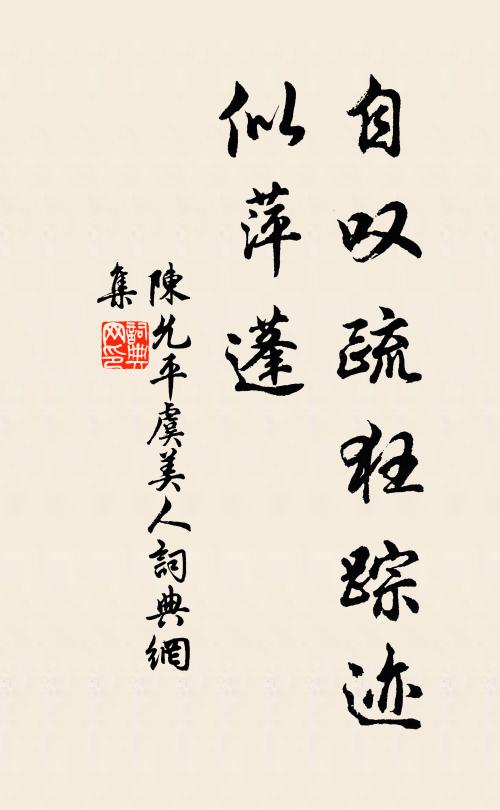 自叹疏狂踪迹
似萍蓬
陳允平虞美人詞典網
集
詞典
网印